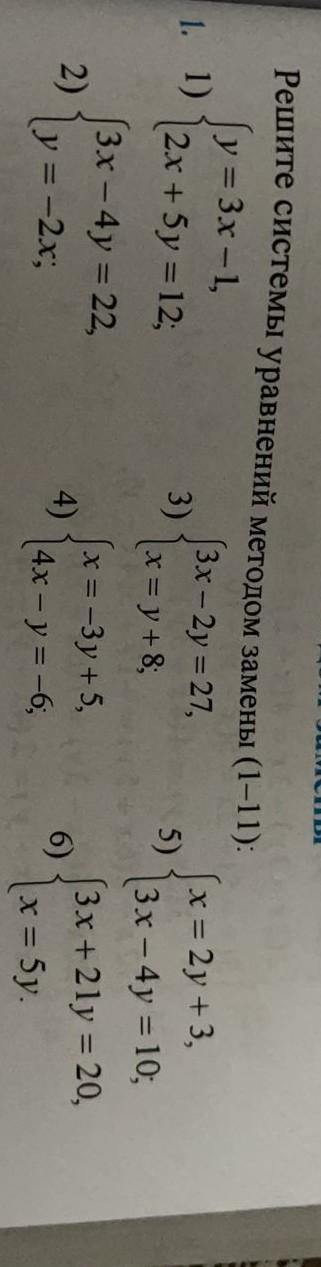 Решите системы уравнений методом замены (1–11):
1. 1) { y = 3x – 1, 2x + 5y = 12;
3) { 3x – 2y = 27, x = y + 8;
5) { x = 2y + 3, 3x – 4y = 10;
2) { 3x – 4y = 22, y = –2x;
4) { x = –3y + 5, 4x – y = –6;
6) { 3x + 21y = 20, x = 5y.